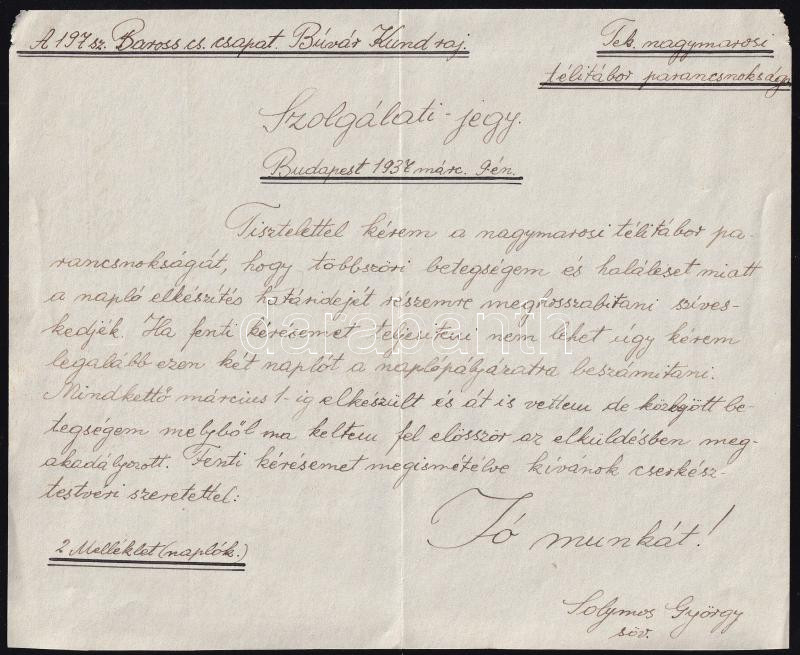 A 197 sz. Baross cs. csapat. Búvár Kund raj.
Tek. nagymarosi
télitábor parancsnoksága
Szolgálati-jegy.
Budapest 1937 márc. 9-én.
Tisztelettel kérem a nagymarosi télitábor pa-
rancsnokságát, hogy többszöri betegségem és haláleset miatt
a napló elkészítés határidejét részemre meghosszabitani szives-
kedjék. Ha fenti kérésemet teljesiteni nem lehet úgy kérem
legalább ezen két naplót a naplópályázatra beszámitani.
Mindkettő március 1-ig elkészült és át is vettem de közbejött be-
tegségem melyből ma keltem fel elösször az elküldésben meg-
akadályozott. Fenti kérésemet megismételve kívánok cserkész-
testvéri szeretettel:
Jó munkát!
2 Melléklet (naplók.)
Solymos György
söv.
darabanth